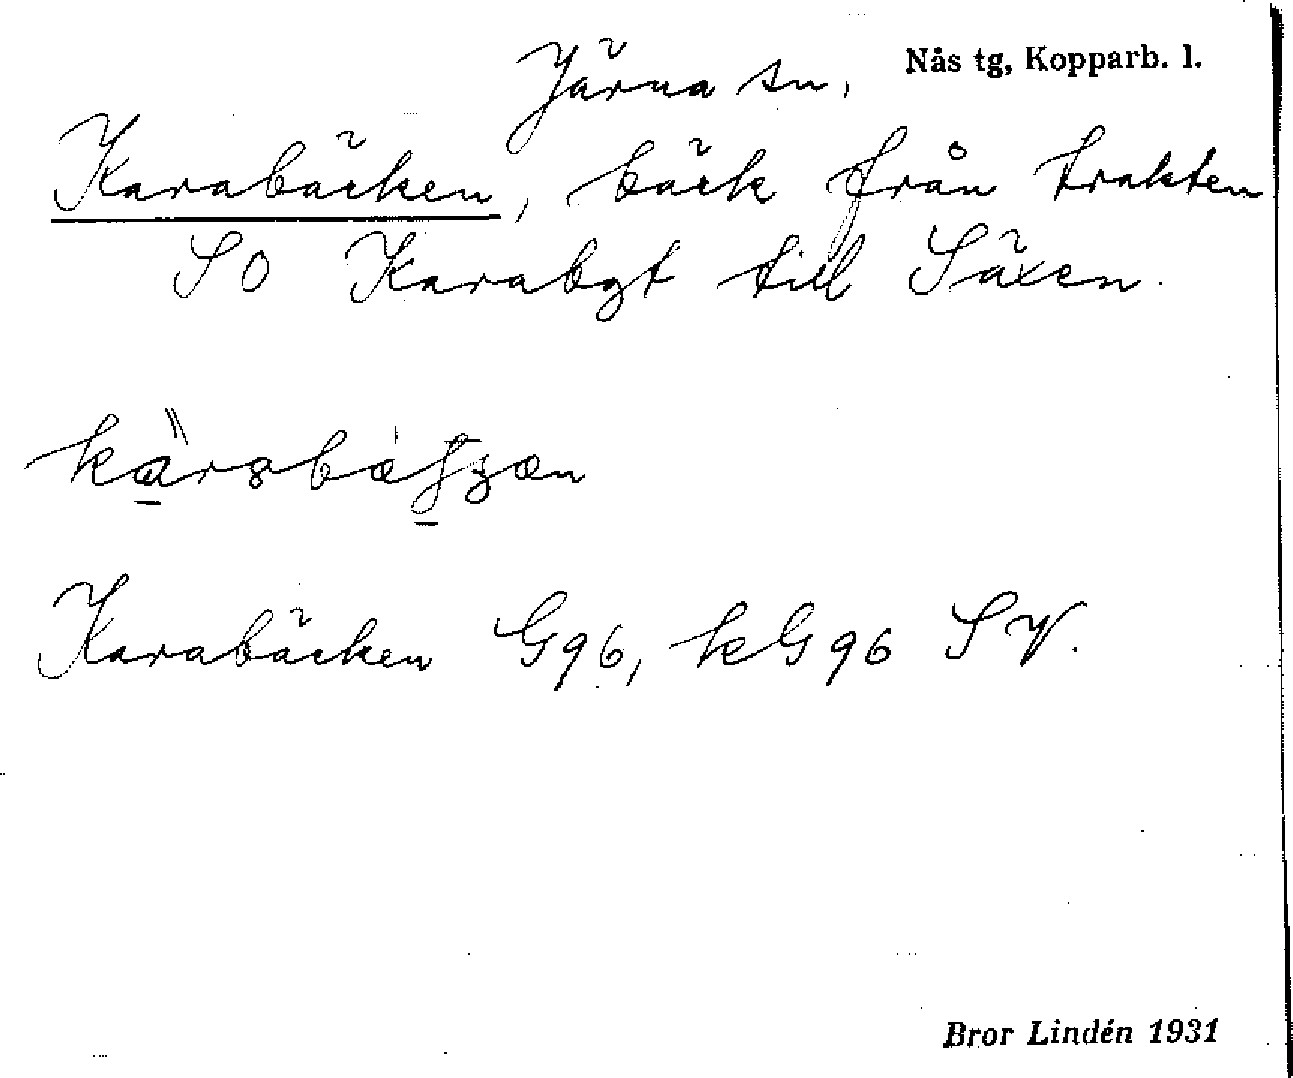 Järna sn. Nås tg, Kopparb. l.
Karabäcken, bäck från trakten
SO Karabgt till Säxen.
Karabäcken G96, kG96 SV.
Bror Lindén 1931